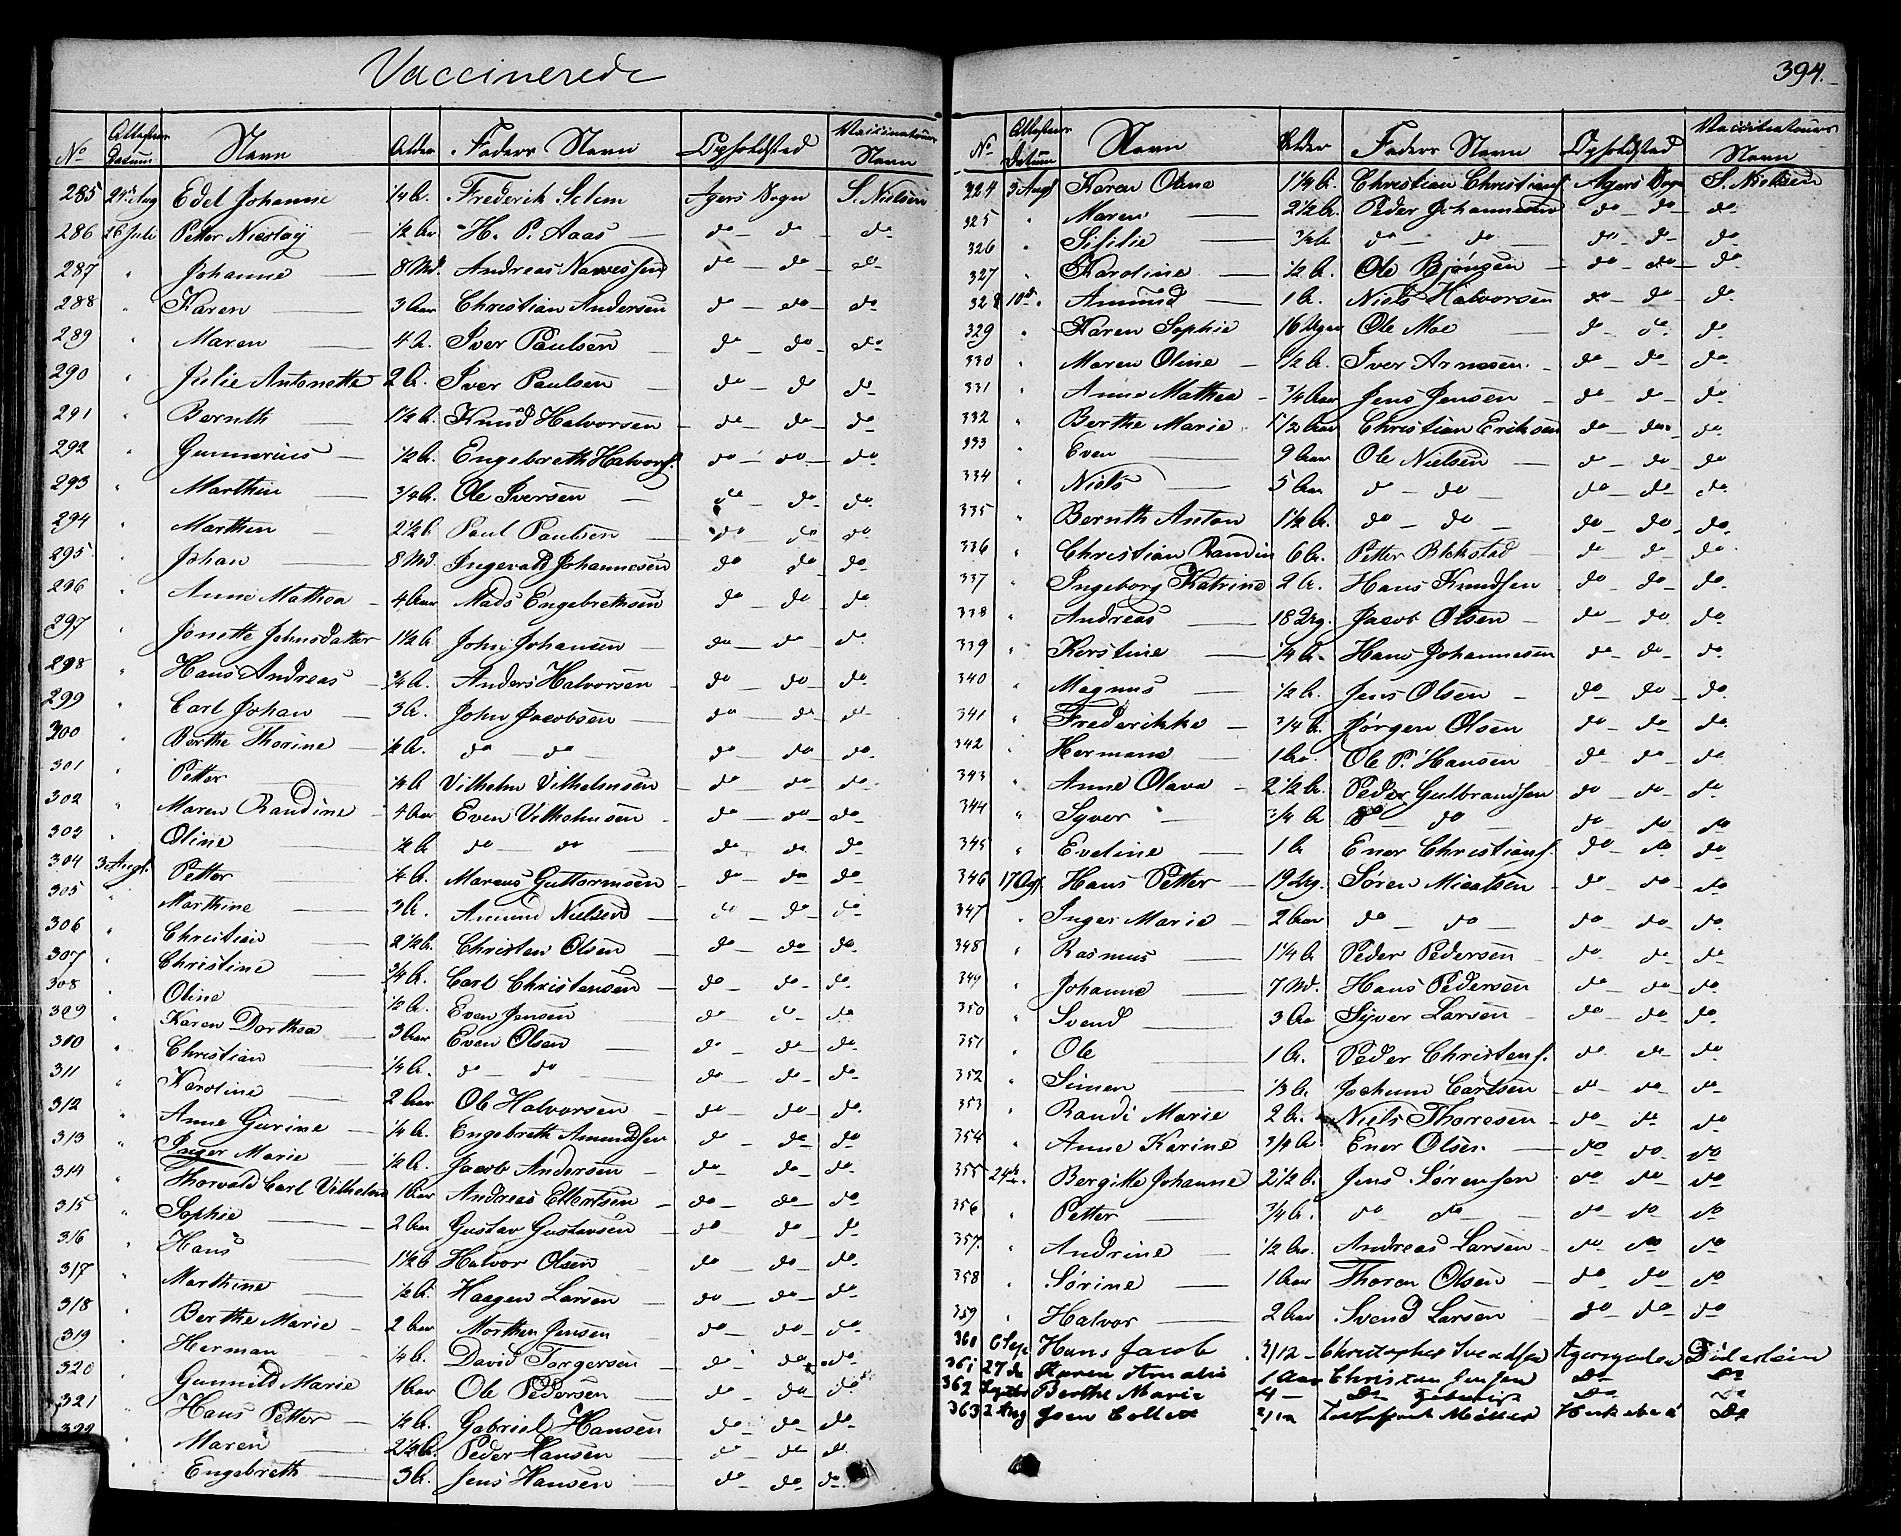 Vaccinerede
394.
No Attestens Datum Navn Alder Faders Navn Opholdsted Vaccinateurs Navn
285 24de Aug Edel Johanne 1/4 A. Frederik Selem Agers Sogn S. Nielsen
286 26 Juli Petter Nicolay 1/2 Aar H. P. Aas do do do
287 " Johanne 8 Md. Andreas Narvesen do do do
288 " Karen 3 Aar Christian Andersen do do do
289 " Maren 4 A. Iver Paulsen do do do
290 " Julie Antonette 2 A. Iver Paulsen do do do
291 " Bernth 1 1/2 A. Knud Halvorsen do do do
292 " Gunnerius 1/2 A. Engebreth Halvors. do do do
293 " Marthin 3/4 A. Ole Iversen do do do
294 " Marthin 2 1/2 A. Paul Paulsen do do do
295 " Johan 8 Md. Ingevald Johannesen do do do
296 " Anne Mathea 4 Aar Mads Engebrethsen do do do
297 " Jonette Johnsdatter 1 1/2 A. John Johansen do do do
298 " Hans Andreas 3/4 A. Anders Halvorsen do do do
299 " Carl Johan 3 A. John Jacobsen do do do
300 " Berthe Thorine 1/2 A. do do do do do
301 " Petter 1/4 A. Vilhelm Vilhelmsen do do do
302 " Maren Randine 4 Aar Even Vilhelmsen do do do
303 " Oline 1/2 A. do do do do do
304 3 Augt. Petter 1/4 A. Marcus Guttormsen do do do
305 " Marthine 3 A. Amund Nielsen do do do
306 " Christian 2 1/2 A. Christen Olsen do do do
307 " Christine 3/4 A. Carl Christensen do do do
308 Oline 1/2 A. Even Jensen do do do
309 " Karen Dorthea 3 Aar Even Olsen do do do
310 " Christian 1/4 A. do do do do do
311 " Karoline 2 Aar Ole Halvorsen do do do
312 " Anne Gurine 1/4 A. Engebreth Amundsen do do do
313 " Inger Marie 1/2 A. Jacob Andersen do do do
314 " Thorvald Carl Vilhelm 1 Aar Andreas Ellertsen do do do
315 " Sophie 2 Aar Gustav Gustavsen do do do
316 " Hans 1 1/2 A. Halvor Olsen do do do
317 " Marthine 1/2 A. Haagen Larsen do do do
318 " Berthe Marie 2 Aar Morthen Jensen do do do
319 " Herman 1/4 A. David Torgersen do do do
320 " Gunnild Marie 1 Aar Ole Pedersen do do do
321 " Hans Petter 1/2 A. Gabriel Hansen do do do
322 " Maren 2 1/2 A. Peder Hansen do do do
" Engebreth 3 A. Jens Hansen do do do
No Attestens Datum Navn Alder Faders Navn Opholdsted Vaccinateurs Navn
324 3 Aug Karen Oline 1 1/4 A. Christian Christians. Agers Sogn S. Nielsen
325 " Maren 2 1/2 A. Peder Johannesen do do do
326 " Sisilie 3/4 A. do do do do do
327 " Karoline 1/2 A. Ole Bjönsen do do do
328 10de " Amund 1 A. Niels Halvorsen do do do
329 " Karen Sophie 16 Uger Ole Moe do do do
330 " Maren Oline 1/2 A. Iver Arnesen do do do
331 " Anne Mathea 3/4 Aar Jens Jensen do do do
332 " Berthe Marie 1 1/2 Aar Christian Eriksen do do do
333 " Even 9 Aar Ole Nielsen do do do
334 " Niels 5 Aar do do do do do
335 " Bernth Anton 1 1/2 A. do do do do do
336 " Christian Randin 6 A. Petter Blekstad do do do
337 " Ingeborg Katrine 2 A. Hans Knudsen do do do
338 " Andreas 18 Ug. Jacob Olsen do do do
339 " Kerstine 1/4 A. Hans Johannesen do do do
340 " Magnus 1/2 A. Jens Olsen do do do
341 " Frederikke 3/4 A. Jørgen Olsen do do do
342 " Hermann 1 Aar Ole P. Hansen do do do
343 " Anne Olava 2 1/2 A. Peder Gulbrandsen do do do
344 " Syver 3/4 A. do do do do do
345 " Eveline 1 A. Ener Christians. do do do
346 17 Aug Hans Petter 19 Ug. Søren Micalsen do do do
347 " Inger Marie 2 Aar do do do do do
348 " Rasmus 1 1/4 A. Peder Pedersen do do do
349 " Johanne 7 Md. Hans Pedersen do do do
350 " Svend 3 Aa Syver Larsen do do do
351 " Ole 1 A. Peder Christens. do do do
352 " Simen 1/3 A. Jochum Carlsen do do do
353 " Randi Marie 2 A. Niels Thoresen do do do
354 " Anne Karine 3/4 A. Ener Olsen do do do
355 24de. Bergitte Johanne 2 1/2 A. Jens Sørensen do do do
356 " Petter 3/4 A. do do do do do
357 " Andrine 1/2 Aa. Andreas Larsen do do do
358 " Sørine 1 Aar Thoren Olsen do do do
359 " Halvor 2 Aar Svend Larsen do do do
360 6 Sep Hans Jacob 3/12 Christopher Svendsen Agersgaden Döderlein
361 27 de Karen Amalie 1 Aar Christian Jensen Do Do
362 Berthe Marie 4 Do Do Do
363 2 Aug Joen Collett 2/12 Møller Do